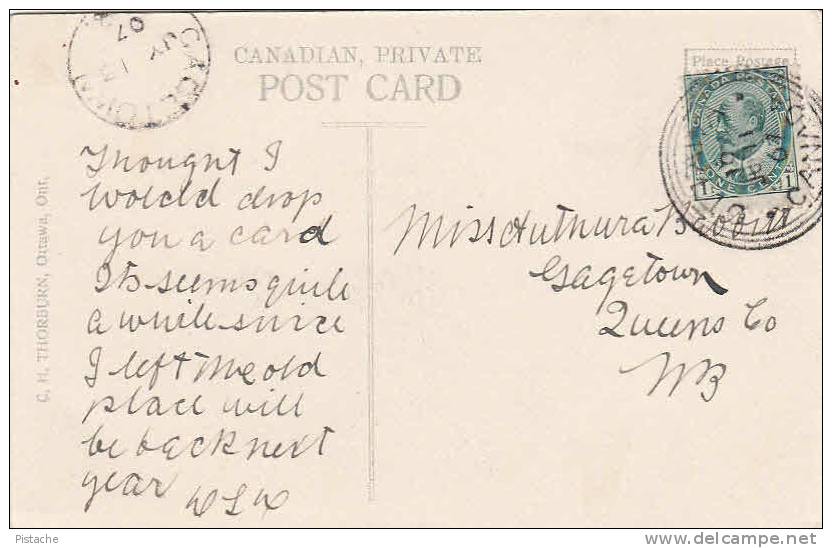 GAGETOWN
JY 13
07
CANADIAN, PRIVATE
POST CARD
Place Postage
CANADA POSTAGE
ONE CENT
1 1
CANADA
Thought I
would drop
you a card
Its seems quite
a while since
I left the old
place will
be back next
year
Miss
Gagetown
Queens Co
NB
C. H. THORBURN, Ottawa, Ont.
Pistache
www.delcampe.net